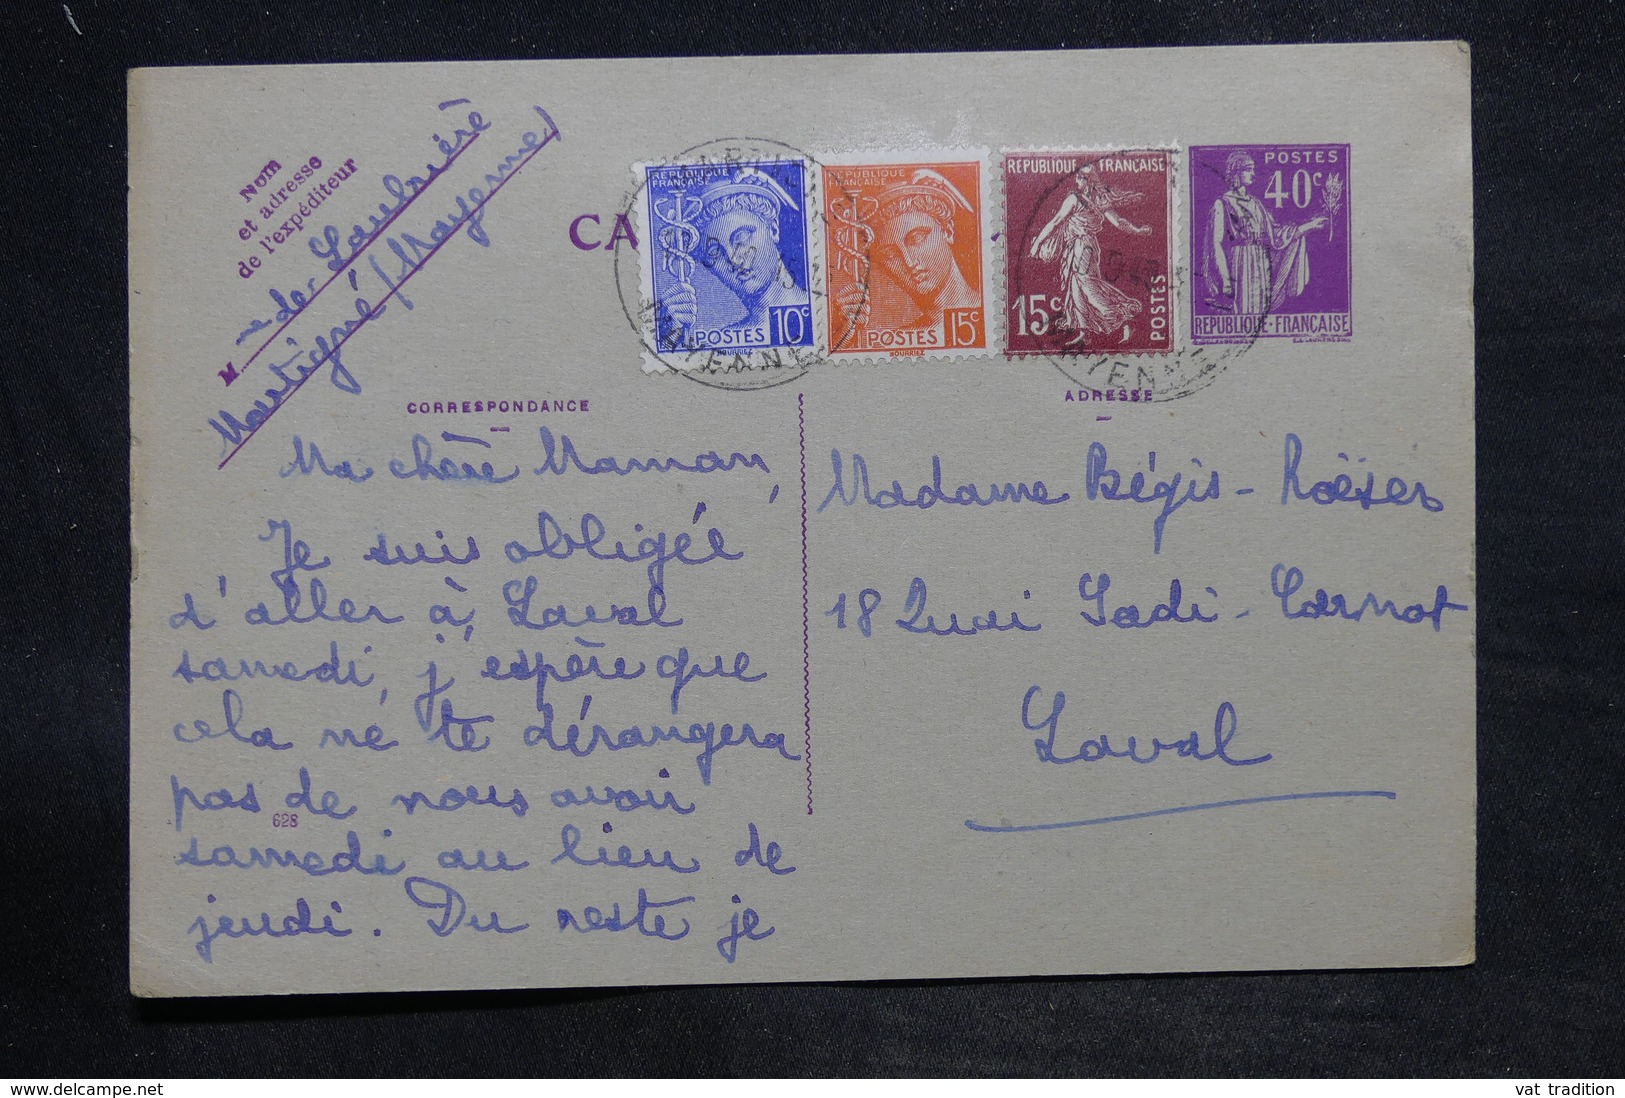 Nom
et adresse
de l'expéditeur
M me de Laubrière
Montigné (Mayenne)
CA
RÉPUBLIQUE
FRANÇAISE
POSTES 10c
RÉPUBLIQUE
FRANÇAISE
POSTES 15c
RÉPUBLIQUE FRANÇAISE
15c
POSTES
POSTES
40c
RÉPUBLIQUE-FRANÇAISE
MAYENNE
MAYENNE
CORRESPONDANCE
Ma chère Maman,
Je suis obligée
d'aller à Laval
samedi, j'espère que
cela ne te dérangera
pas de nous avoir
samedi au lieu de
jeudi. Du reste je
628
ADRESSE
Madame Bégis-Roëser
18 Quai Sadi-Carnot
Laval
www.delcampe.net
vat tradition